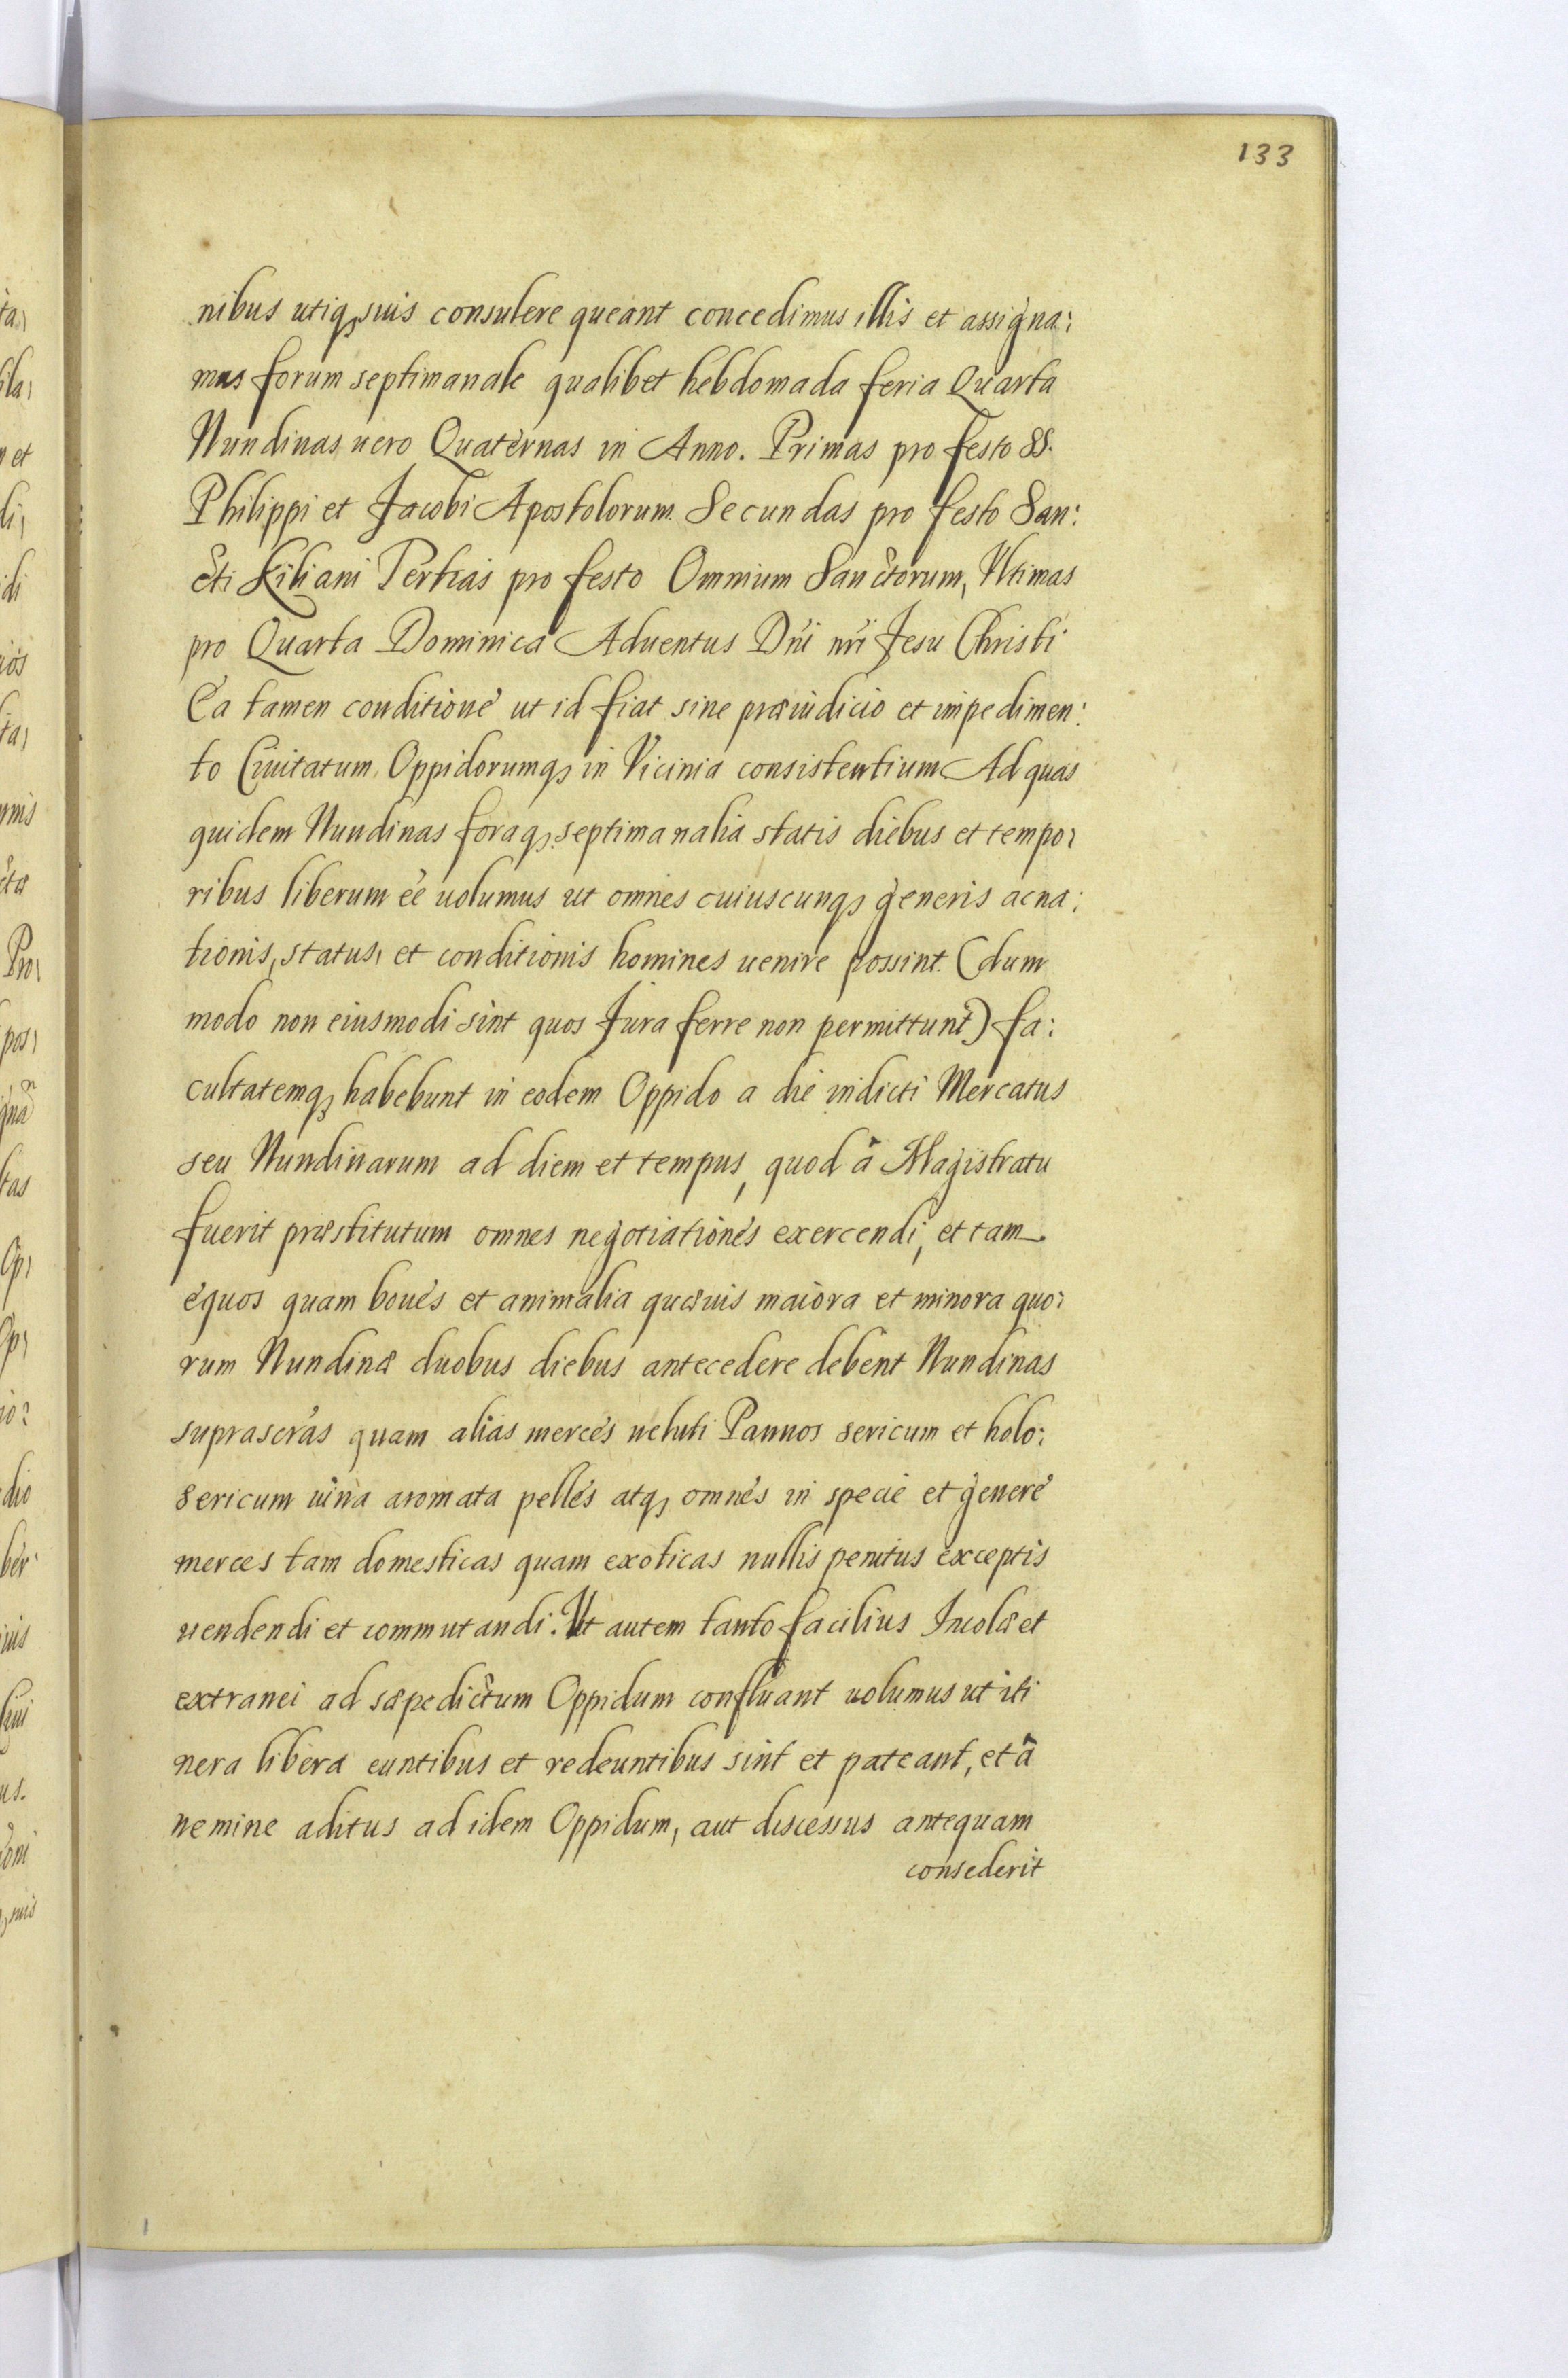 133
nibus utiq₃ suis consulere queant concedimus illis et assigna:
mus forum septimanale qualibet hebdomada feria Quarta
Nundinas uero Quaternas in Anno. Primas pro festo SS.
Philippi et Jacobi Apostolorum. Secundas pro festo San:
cti Kiliani Tertias pro festo Omnium Sanctorum, Vltimas
pro Quarta Dominica Aduentus Dñi nri Jesu Christi
Ea tamen conditione ut id fiat sine præiudicio et impedimen:
to Ciuitatum, Oppidorumq₃ in Vicinia consistentium Ad quas
quidem Nundinas foraq₃ septimanalia statis diebus et tempo:
ribus liberum ee uolumus ut omnes cuiuscunq₃ generis ac na:
tionis, status, et conditionis homines uenire possint. (dum
modo non eiusmodi sint quos Jura ferre non permittunt) fa:
cultatemq₃ habebunt in eodem Oppido a die indicti Mercatus
seu Nundinarum ad diem et tempus, quod â Magistratu
fuerit præstitutum omnes negotiationes exercendi, et tam
equos quam boues et animalia quæuis maiora et minora quo:
rum Nundinæ duobus diebus antecedere debent Nundinas
suprascras quam alias merces ueluti Pannos sericum et holo:
sericum uina aromata pelles atq₃ omnes in specie et genere
merces tam domesticas quam exoticas nullis penitus exceptis
uendendi et commutandi. Ut autem tanto facilius Incolæ et
extranei ad sæpedictum Oppidum confluant uolumus ut iti
nera libera euntibus et redeuntibus sint et pateant, et â
nemine aditus ad idem Oppidum, aut discessus antequam
consederit